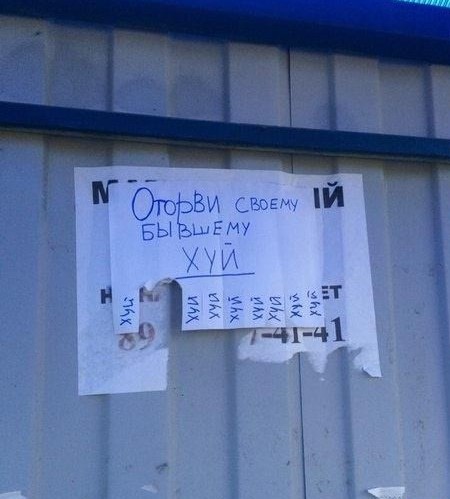 Оторви своему
бывшему
хуй
хуй
хуй
хуй
хуй
хуй
хуй
хуй
хуй
89
7-41-41